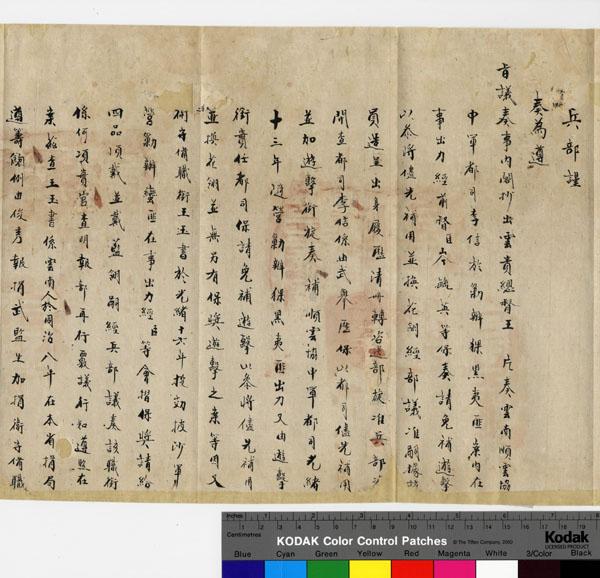 兵部謹
奏為遵
旨議奏事內閣抄出雲貴總督王 片奏雲南順雲協
中軍都司李信於勦辦猓黑夷匪案內在
事出力經前督臣岑毓英等保奏請免補遊擊
以叅將儘先補用並換花翎經部議准嗣據
員造並出身履歷清冊轉咨過部旋准兵部
開查都司李信係由武舉 保以都司儘先補用
並加遊擊銜旋奏補順雲協中軍都司光緒
十三年 隨營勦辦猓黑夷匪出力又由遊擊
銜實任都司保請免補遊擊以叅將儘先補用
並換花翎並無另有保獎遊擊之案等因又
衛守備職銜王玉書於光緒十六年投効披沙軍
營勦辦蠻匪在事出力經臣等會摺保獎請給
四品頂戴並戴藍翎嗣經兵部議奏該職銜
係何項貲營查明報部再行覈議行知遵照在
案茲查王玉書係雲南人於同治八年在本省捐局
遵籌餉例由俊秀報捐武監生加捐衛守備職
Inches
Centimetres
KODAK Color Control Patches
© The Tiffen Company, 2000
Kodak
LICENSED PRODUCT
Blue Cyan Green Yellow Red Magenta White 3/Color Black